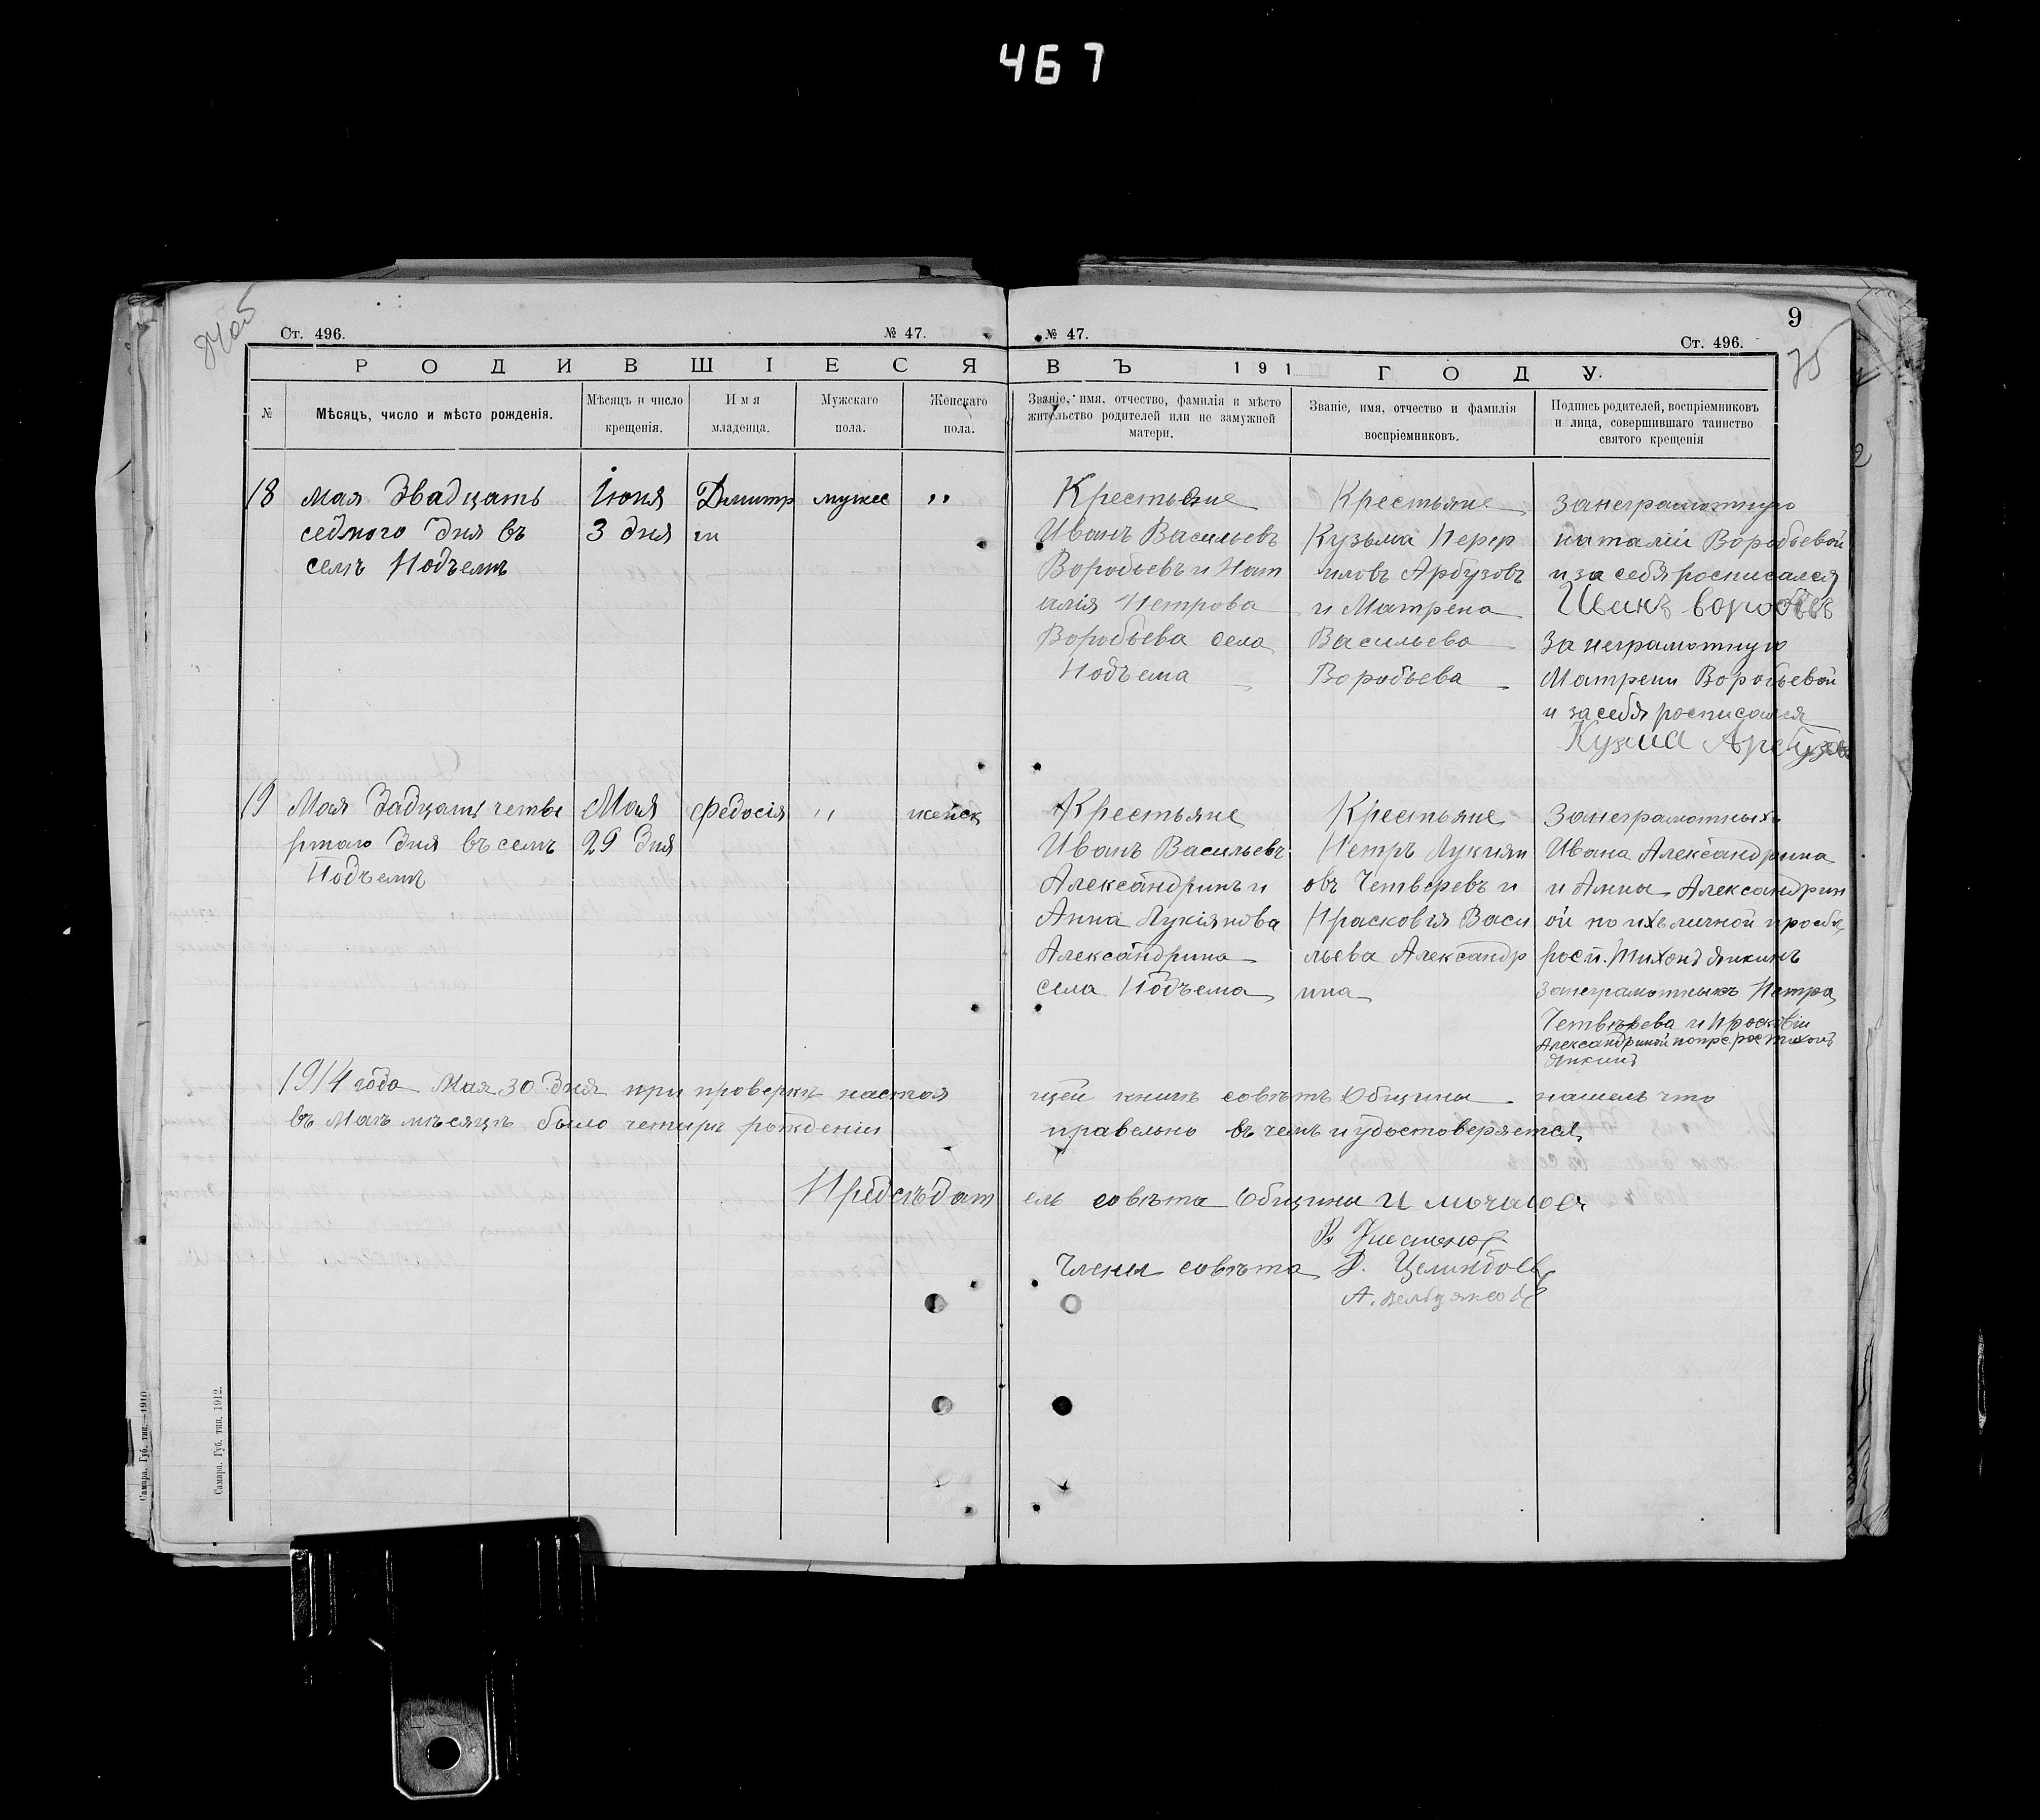 467
9
75
Ст. 496.
№ 47.
№ 47.
Ст. 496.
РОДИВШІЕСЯ
ВЪ 191 ГОДУ.
№
Мѣсяцъ, число и мѣсто рожденія.
Мѣсяцъ и число крещенія.
Имя младенца.
Мужскаго пола.
Женскаго пола.
Званіе, имя, отчество, фамилія и мѣсто жительство родителей или не замужней матери.
Званіе, имя, отчество и фамилія воспріемниковъ.
Подпись родителей, воспріемниковъ и лица, совершившаго таинство святого крещенія
18
мая двадцать
седмого дня въ
селѣ Подъемѣ
Іюня
3 дня
Дмитр
ій
мужес
"
Крестьяне
Иванъ Васильевъ
Воробьевъ и Нат
алія Петрова
Воробьева села
Подъема
Крестьяне
Кузьма Перер
иловъ Арбузовъ
и Матрена
Васильева
Воробьева
За неграмотную
наталіи Воробьевой
и за себя росписался
Иванъ воробьевъ
За неграмотную
Матрени Воробьевой
и за себя росписался
Кузма Арбузовъ
19
Мая дадцать четве
ртаго дня въ селѣ
Подъемѣ
Мая
29 дня
Федосія
"
женск
Крестьяне
Иванъ Васильевъ
Александринъ и
Анна Лукіянова
Александрина
села Подъема
Крестьяне
Петръ Лукиян
овъ Четверевъ и
Прасковія Васи
льева Александр
ина
Занеграмотныхъ
Ивана Александрина
и Анны Александрин
ой по ихъ личной прозбѣ
росп. Тихонъ Янкинъ
занеграмотныхъ Петра
Четверева и Просковіи
Александриной попрс рос Тихонъ
Янкинъ
1914 года Мая 30 дня при проверкѣ настоя
щей книгѣ совѣтъ Общины нашелъ что
въ Маѣ мѣсяцѣ было четырѣ рожденіи
правельно въ чемъ и удостоверяется
Предсѣдат
ель совѣта Общины И мочалов
Члены совѣта
Самара. Губ. тип. 1912.
Самара. Губ. тип.—1910